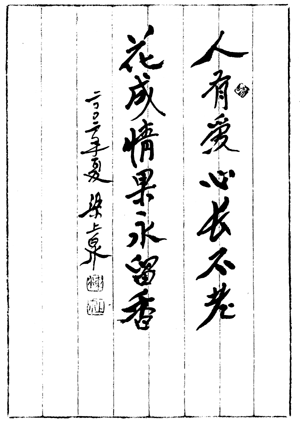 人有爱心长不老
花成情果永留香
二〇〇二年夏 梁上泉